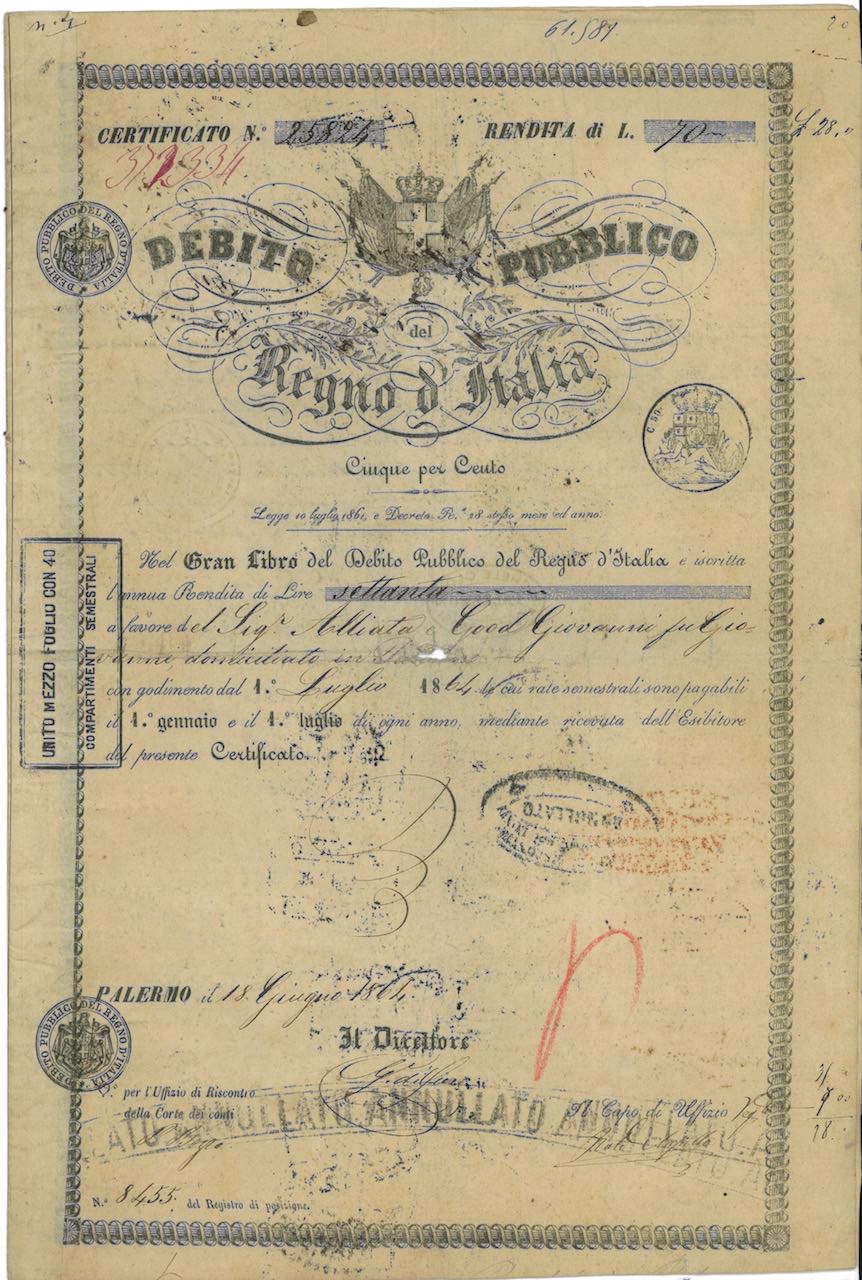 n. 4
61.581
20
CERTIFICATO N.° 25824 RENDITA di L. 70
£ 28,
372334
DEBITO PUBBLICO DEL REGNO D'ITALIA
DEBITO PUBBLICO
del
Regno d'Italia
C. 50.
Cinque per Cento
Legge 10 luglio 1861, e Decreto Re.° 28 stesso mese ed anno.
UNITO MEZZO FOGLIO CON 40
COMPARTIMENTI SEMESTRALI
Nel Gran Libro del Debito Pubblico del Regno d'Italia è iscritta
l'annua Rendita di Lire settanta
a favore del Sig.r Alliata e Good Giovanni fu Gio-
vanni domiciliato in
con godimento dal 1.° Luglio 1864 le cui rate semestrali sono pagabili
il 1.° gennaio e il 1.° luglio di ogni anno, mediante ricevuta dell'Esibitore
del presente Certificato.
ANNULLATO
PALERMO il 18 Giugno 1864.
DEBITO PUBBLICO DEL REGNO D'ITALIA
Il Direttore
per l'Uffizio di Riscontro
della Corte dei conti
Il Capo di Uffizio
ANNULLATO ANNULLATO ANNULLATO
N.° 8455. del Registro di posizione.